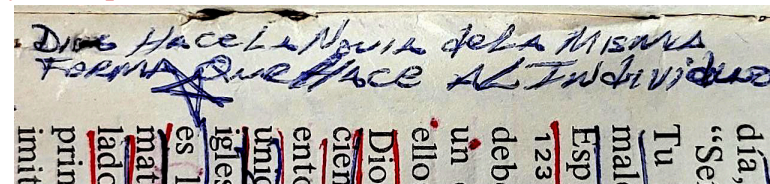 Dios Hace La Novia de La Misma
Forma Que Hace AL Individuo
día,
"Se
Tu
male
Esp
123
debe
un
ello
Dio
cien
ento
unid
igles
es l
mat
lado
prin
imit